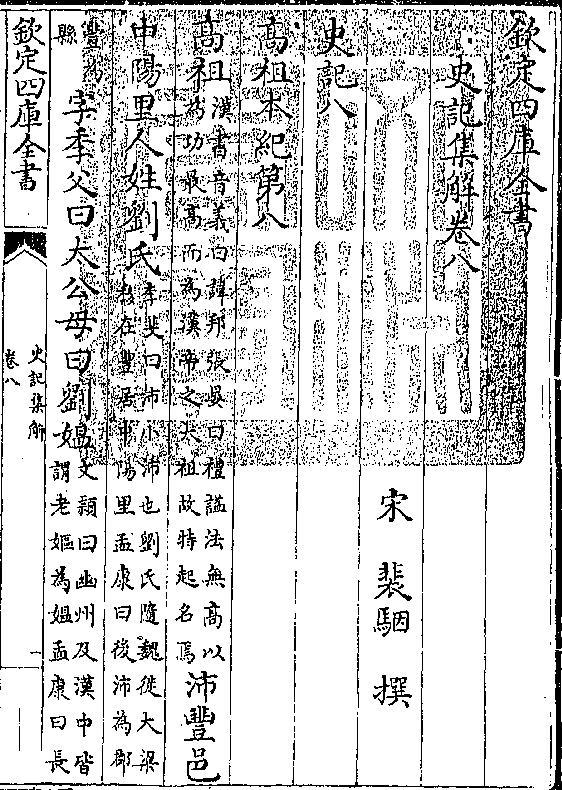 欽定四庫全書
史記集解卷八
宋 裴駰 撰
史記八
高祖本紀第八
高祖漢書音義曰諱邦張晏曰禮諡法無高以為功最高而為漢帝之太祖故特起名焉沛豐邑
中陽里人姓劉氏李斐曰沛小沛也劉氏隨魏徙大梁移在豐居中陽里孟康曰後沛為郡
豐為縣字季父曰大公母曰劉媪文穎曰幽州及漢中皆謂老嫗為媪孟康曰長
欽定四庫全書
史記集解
卷八
一